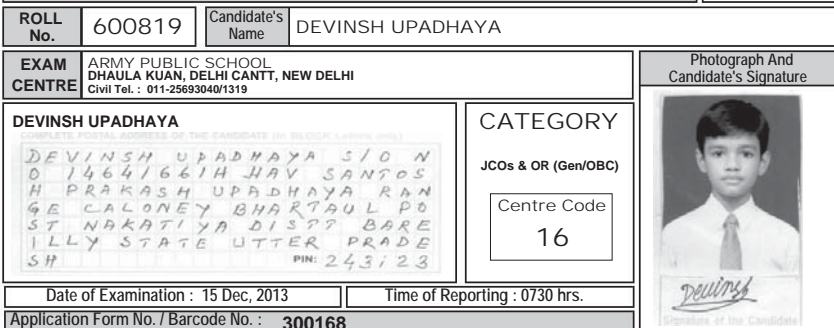 ROLL No. 600819 Candidate's Name DEVINSH UPADHAYA
EXAM CENTRE
ARMY PUBLIC SCHOOL
DHAULA KUAN, DELHI CANTT, NEW DELHI
Civil Tel. : 011-25693040/1319
Photograph And
Candidate's Signature
DEVINSH UPADHAYA
COMPLETE POSTAL ADDRESS OF THE CANDIDATE (In BLOCK Letters only)
DEVINSH UPADHAYA S/O N
O 14641661H HAV SANTOS
H PRAKASH UPADHAYA RAN
GE CALONEY BHARTAUL PO
ST NAKATIYA DISTT BARE
ILLY STATE UTTER PRADE
SH PIN: 243123
CATEGORY
JCOs & OR (Gen/OBC)
Centre Code
16
Devinsh
Signature of the Candidate
Date of Examination : 15 Dec, 2013 Time of Reporting : 0730 hrs.
Application Form No. / Barcode No. : 300168